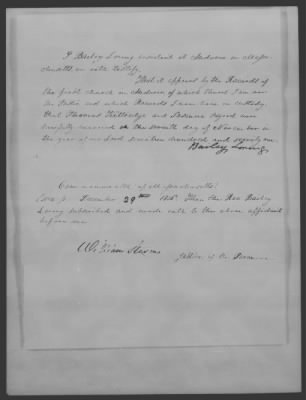 I Bailey Loring resident at Andover in Massa-
chusetts on oath testify
That it appears by the Records of
the first church in Andover of which Church I am now
the Pastor and which Records I now have in custody
that and were
lawfully married on the seventh day of November in
the year of our Lord seventeen hundred and seventy one
Bailey Loring
Commonwealth of Massachusetts
Essex ss December 29th Then the Rev Bailey
Loring subscribed and made oath to the above affidavit
before me
William Stevens
Justice of the Peace